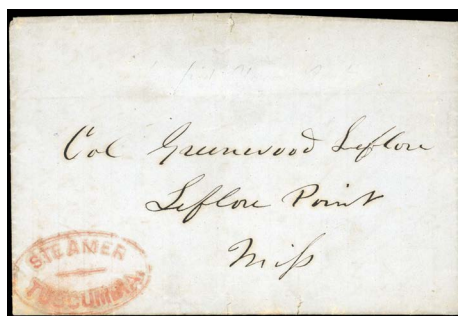 Col Greenwood Leflore
Leflore Point
Miss
STEAMER
TUSCUMBIA